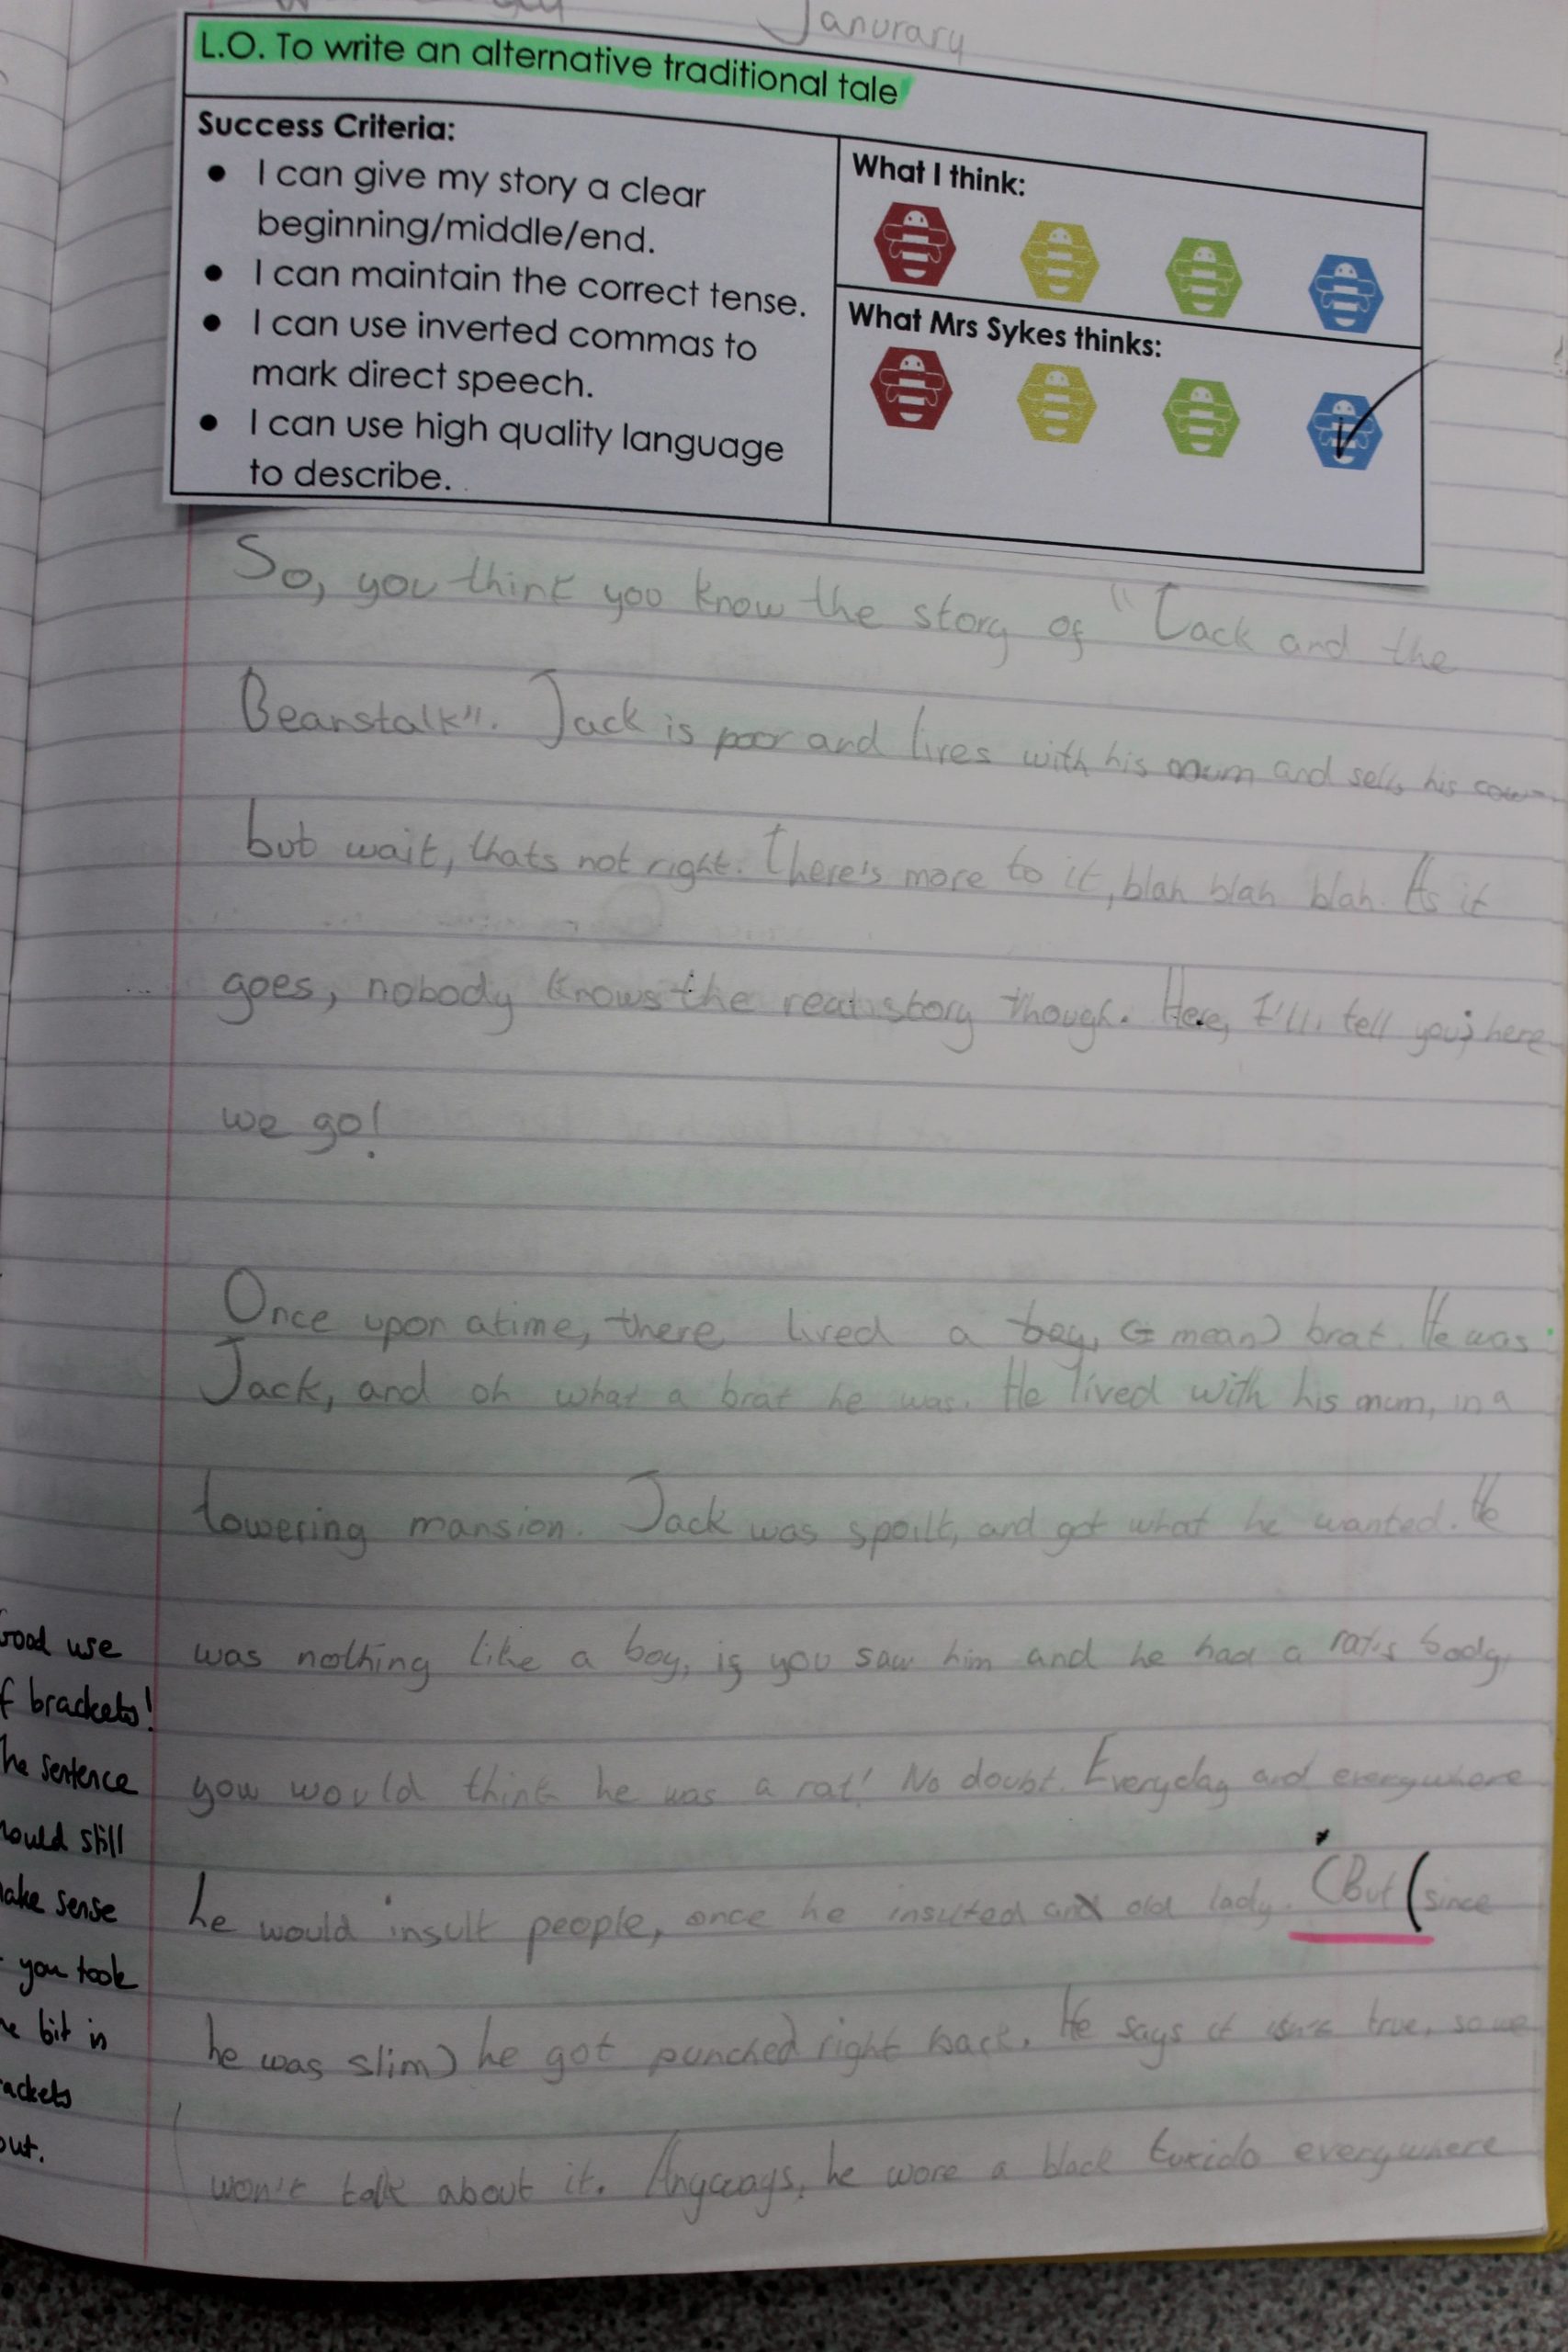 Janurary
L.O. To write an alternative traditional tale
Success Criteria:
● I can give my story a clear
beginning/middle/end.
● I can maintain the correct tense.
● I can use inverted commas to
mark direct speech.
● I can use high quality language
to describe.
What I think:
What Mrs Sykes thinks:
So, you think you know the story of "Jack and the
Beanstalk". Jack is poor and lives with his mum and sells his cow-
but wait, thats not right. There's more to it, blah blah blah. As it
goes, nobody knows the real story though. Here, I'll tell you; here
we go!
Once upon atime, there lived a boy, (a mean) brat. He was
Jack, and oh what a brat he was. He lived with his mum, in a
towering mansion. Jack was spoilt, and got what he wanted. He
was nothing like a boy, if you saw him and he had a rat's body,
you would think he was a rat! No doubt. Everyday and everywhere
he would insult people, once he insulted an old lady. (But (since
he was slim) he got punched right back. He says it isn't true, so we
won't talk about it. Anyways, he wore a black tuxido everywhere
Good use
of brackets!
The sentence
should still
make sense
you took
the bit in
brackets
out.